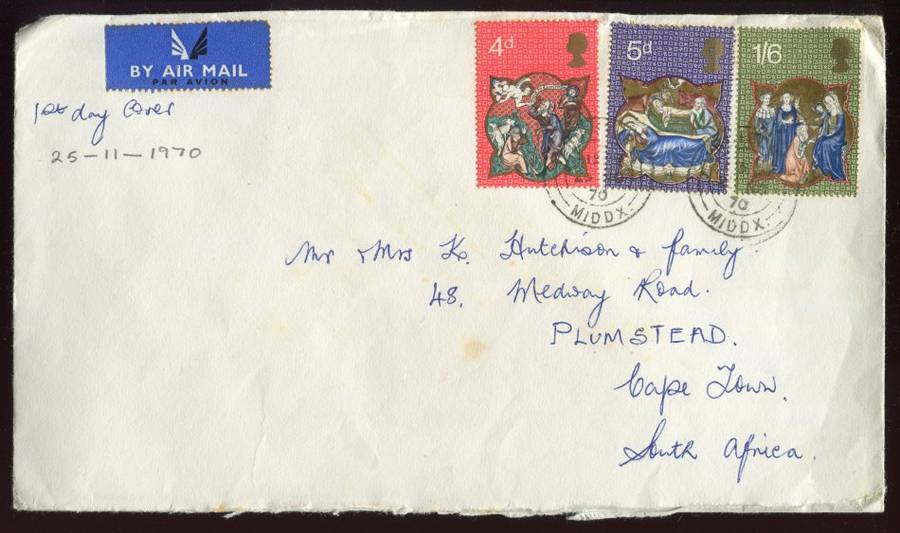 BY AIR MAIL
PAR AVION
1st day Cover
25-11-1970
4d
5d
1/6
70
MIDDX.
70
MIDDX.
Mr & Mrs K. Hutchison & family.
48, Medway Road.
PLUMSTEAD.
Cape Town.
South Africa.